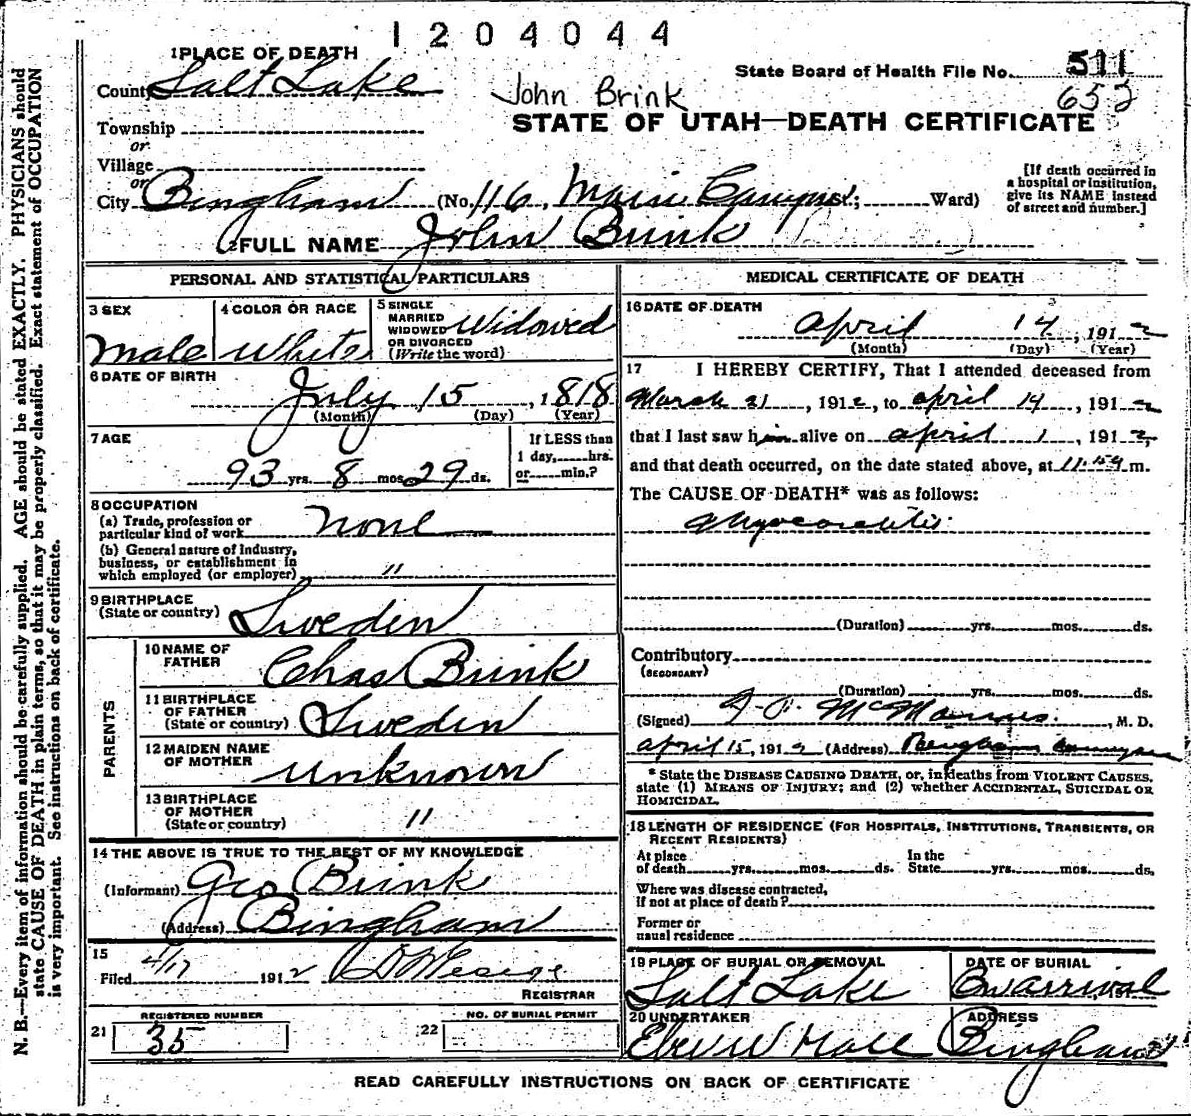 1204044
1 PLACE OF DEATH
State Board of Health File No. 511
County Salt Lake
John Brink
652
STATE OF UTAH—DEATH CERTIFICATE
Township
or
Village
or
City Bingham (No. 116, Main Canyon; Ward)
[If death occurred in a hospital or institution, give its NAME instead of street and number.]
2 FULL NAME John Brink
PERSONAL AND STATISTICAL PARTICULARS
3 SEX
Male
4 COLOR OR RACE
White
5 SINGLE MARRIED WIDOWED OR DIVORCED (Write the word)
Widowed
6 DATE OF BIRTH
July 15, 1818
(Month) (Day) (Year)
7 AGE
93 yrs. 8 mos. 29 ds.
If LESS than
1 day, hrs.
or min.?
8 OCCUPATION
(a) Trade, profession or particular kind of work None
(b) General nature of industry, business, or establishment in which employed (or employer) "
9 BIRTHPLACE
(State or country) Sweden
PARENTS
10 NAME OF FATHER Chas Brink
11 BIRTHPLACE OF FATHER (State or country) Sweden
12 MAIDEN NAME OF MOTHER Unknown
13 BIRTHPLACE OF MOTHER (State or country) "
14 THE ABOVE IS TRUE TO THE BEST OF MY KNOWLEDGE
(Informant) Geo Brink
(Address) Bingham
15
Filed 4/17 1912
REGISTRAR
REGISTERED NUMBER
21 35
NO. OF BURIAL PERMIT
22
MEDICAL CERTIFICATE OF DEATH
16 DATE OF DEATH
April 14, 1912
(Month) (Day) (Year)
17 I HEREBY CERTIFY, That I attended deceased from
March 21, 1912, to April 14, 1912
that I last saw him alive on April 1, 1912,
and that death occurred, on the date stated above, at 11:59 m.
The CAUSE OF DEATH* was as follows:
Myocarditis
(Duration) yrs. mos. ds.
Contributory
(SECONDARY)
(Duration) yrs. mos. ds.
(Signed) McManus, M. D.
April 15, 1912 (Address) Bingham Canyon
* State the DISEASE CAUSING DEATH, or, in deaths from VIOLENT CAUSES,
state (1) MEANS OF INJURY; and (2) whether ACCIDENTAL, SUICIDAL OR
HOMICIDAL.
18 LENGTH OF RESIDENCE (FOR HOSPITALS, INSTITUTIONS, TRANSIENTS, OR
RECENT RESIDENTS)
At place of death yrs. mos. ds. In the State yrs. mos. ds.
Where was disease contracted,
if not at place of death?
Former or
usual residence
19 PLACE OF BURIAL OR REMOVAL
Salt Lake
DATE OF BURIAL
On arrival, 191
20 UNDERTAKER
Eber W Hall
ADDRESS
Bingham
READ CAREFULLY INSTRUCTIONS ON BACK OF CERTIFICATE
N. B.—Every item of information should be carefully supplied. AGE should be stated EXACTLY. PHYSICIANS should
state CAUSE OF DEATH in plain terms, so that it may be properly classified. Exact statement of OCCUPATION
is very important. See instructions on back of certificate.